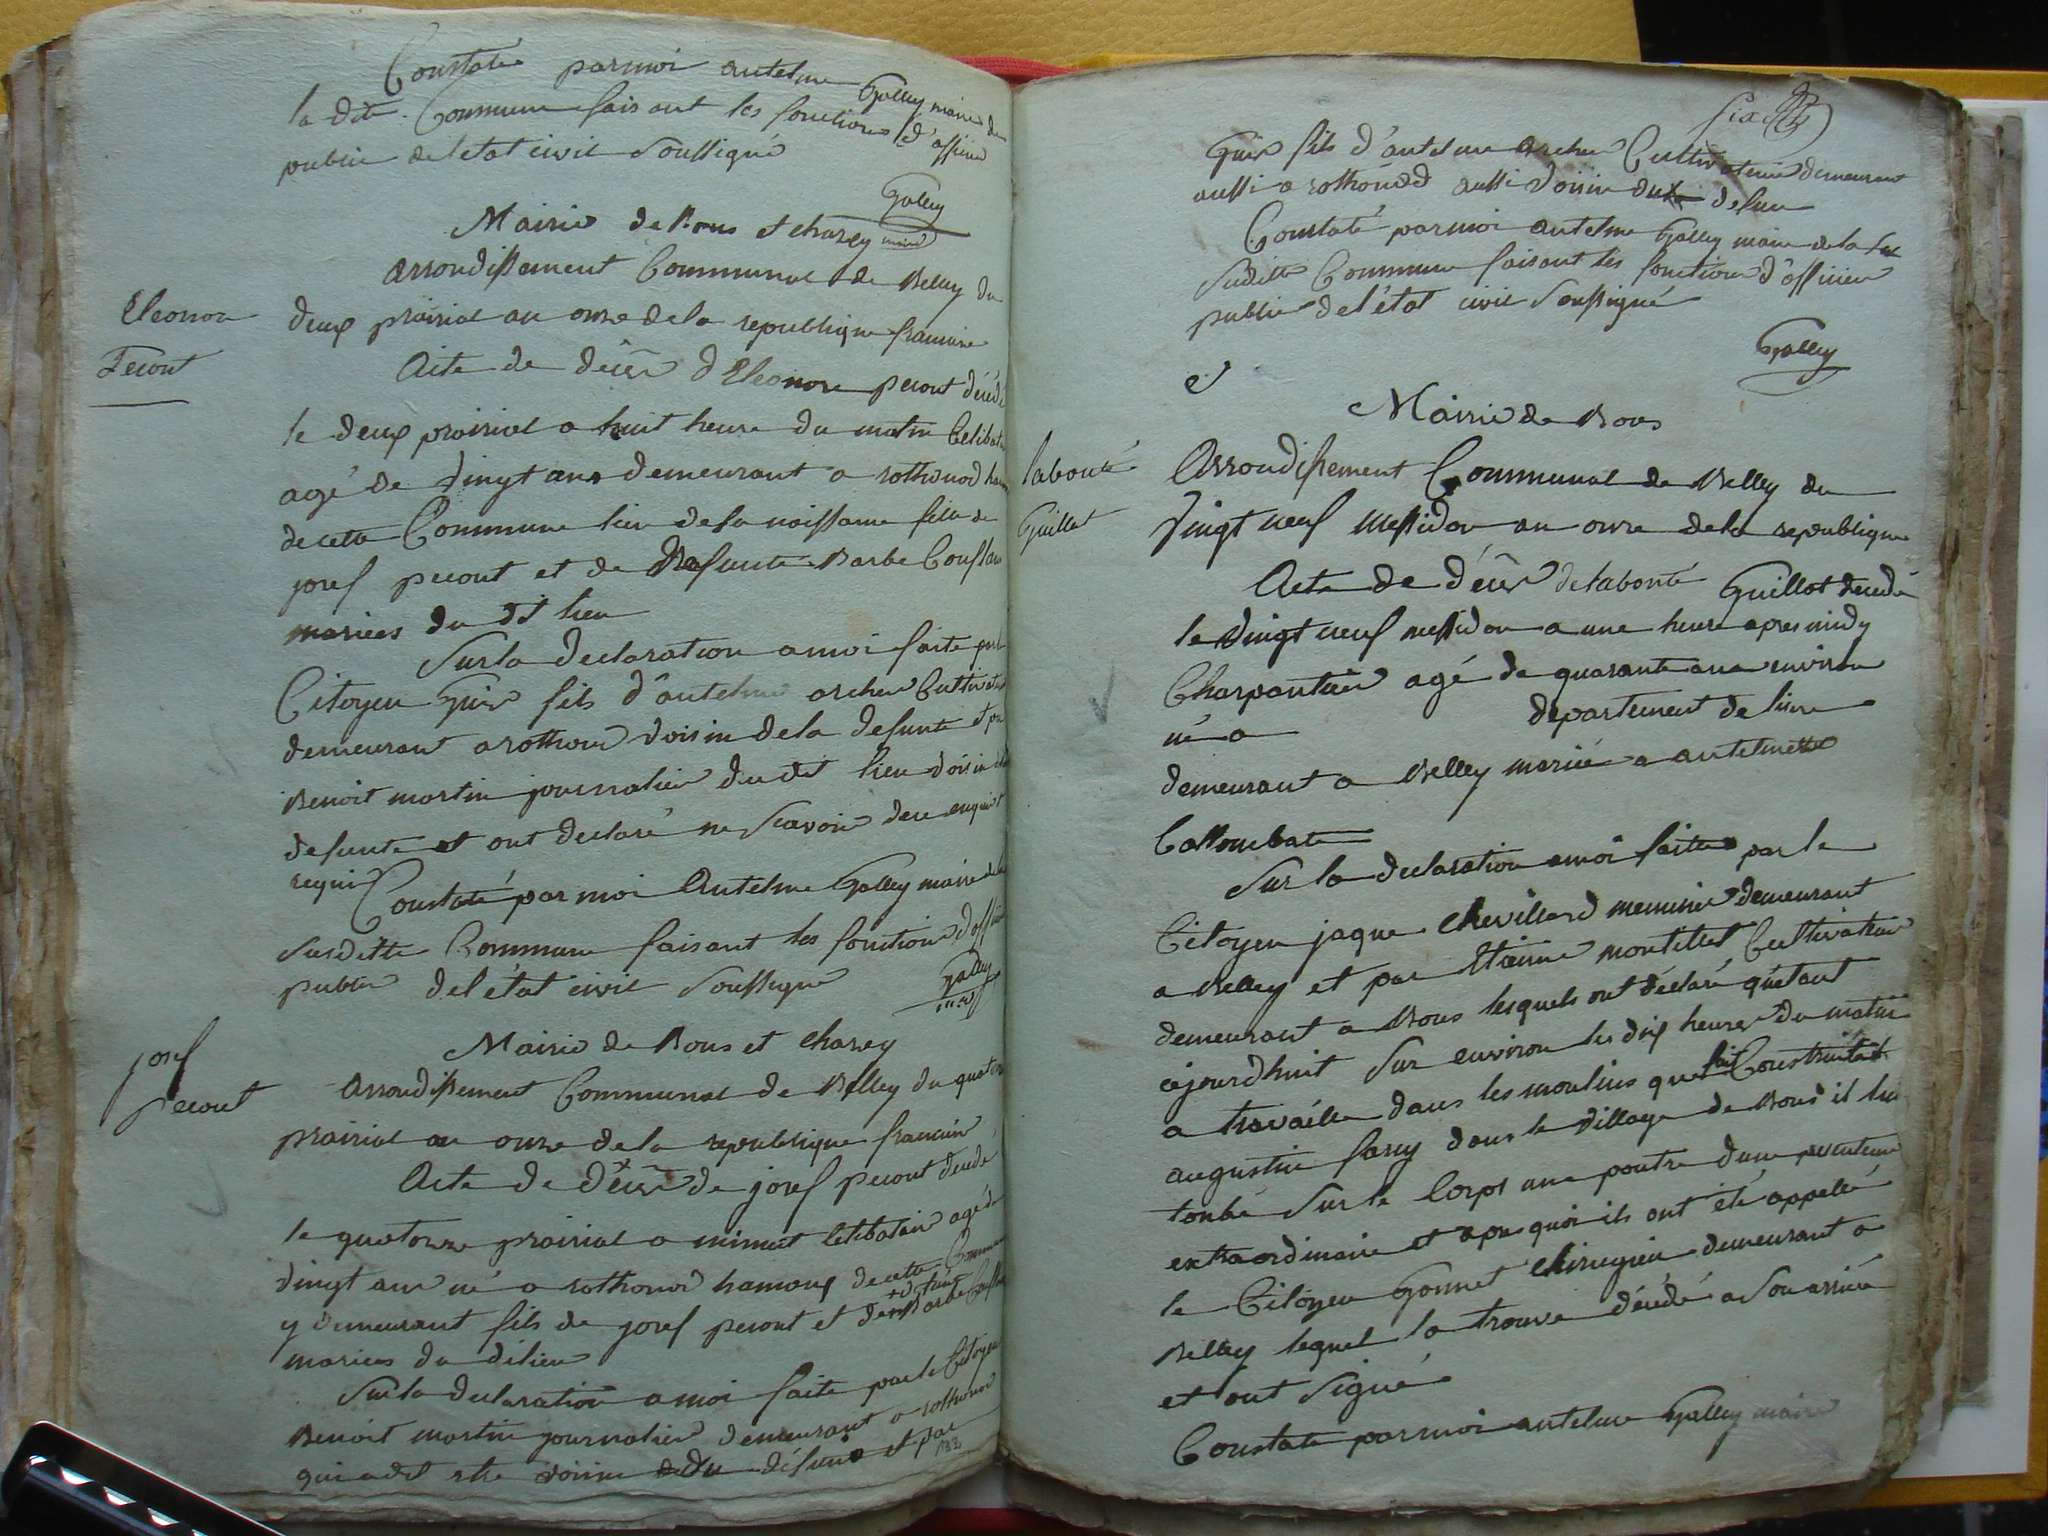 Constate par moi antelme Galley maire de
la dite Commune faisant les fonctions d'officier
public de letat civil soussigné
Galley
maire
Mairie de Bons et chazey
arrondissement Communal de Belley du
deux prairial an onze de la republique francaise
Eleonore
Pecout
Acte de décès d'Eleonore pecout décédé
le deux prairial a huit heure du matin Celibat
agé de vingt ans demeurant a rothonod ham
de cette Commune lieu de sa naissance fille de
josef pecout et de defunte Barbe Conflan
mariees du dt lieu
Sur la declaration a moi faite par l
Citoyen Guix fils d'antelme archer Cultivateu
demeurant a rothonod voisin de la defunte et pa
Benoit martin journalier du dit lieu voisin de
defunte et ont declaré ne scavoir de ce enquis et
requis
Constaté par moi Antelme Galley maire de la
susditte Commune faisant les fonctions d'offici
public de l'état civil soussigné
Galley
maire
Mairie de Bons et chazey
josef
pecout
arrondissement Communal de Belley du quatorze
prairial an onze de la republique francaise
Acte de décès de josef pecout decedé
le quatorze prairial a minuit celibataire agé de
vingt ans né a rothonod hamaux de cette Commune
y demeurant fils de josef pecout et de defunte Barbe Conflan
mariees du dilieu
Sur la declaration a moi faite par le Citoyen
Benoit martin journalier demeurant a rothonod
qui a dit etre voisin du défunt et par
six
Guix fils d'antelme archer Cultivateur demeurant
aussi a rothonod aussi voisin du de lieu
Constaté par moi antelme Galley maire de la
Suditte Commune faisant les fonctions d'officier
public de l'état civil soussigné
Galley
Mairie de Bons
labonté
Guillot
Arrondissement Communal de Belley du
vingt neuf Messidor an onze de la republique
Acte de décès de labonté Guillot decedé
le vingt neuf messidor a une heure apres midy
Charpantier agé de quarante ans environ
né a departement de lisere
demeurant a Belley marié a antelmette
Collombate
Sur la declaration a moi faite par le
Citoyen jaque chevillard menuisier demeurant
a Belley et par Etienne montillet Cultivateur
demeurant a Bons lesquels ont déclaré quétant
ajourdhuit sur environ les dix heures du matin
a travaille dans les moulins que fait Construire
augustin sary dans le village de Bons il lui
tonbé sur le Corps une poutre dune pesenteure
extraordinaire et apres quoi ils ont été appellé
le Citoyen Gonnet chirugien demeurant a
Belley lequel la trouve décédé a son arrivé
et ont signé
Constate par moi antelme Galley maire